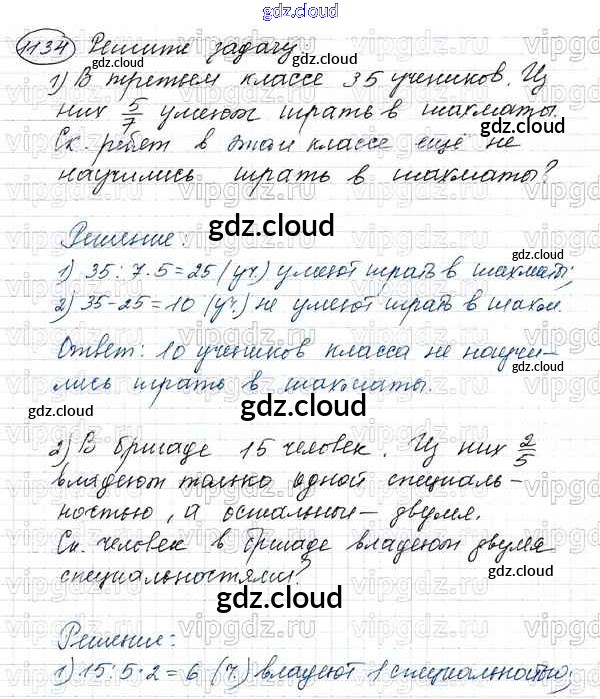 gdz.cloud
1134 Решите задачу.
1) В третьем классе 35 учеников. Из
них 5/7 умеют играть в шахматы.
Ск. ребят в этом классе ещё не
научились играть в шахматы?
gdz.cloud
Решение:
1) 35 : 7 · 5 = 25 (уч.) умеют играть в шахматы;
2) 35 - 25 = 10 (уч.) не умеют играть в шахм.
Ответ: 10 учеников класса не научи-
лись играть в шахматы.
gdz.cloud
2) В бригаде 15 человек. Из них 2/5
владеют только одной специаль-
ностью, а остальные - двумя.
Ск. человек в бригаде владеют двумя
специальностями?
gdz.cloud
Решение:
1) 15 : 5 · 2 = 6 (ч.) владеют 1 специальностью;